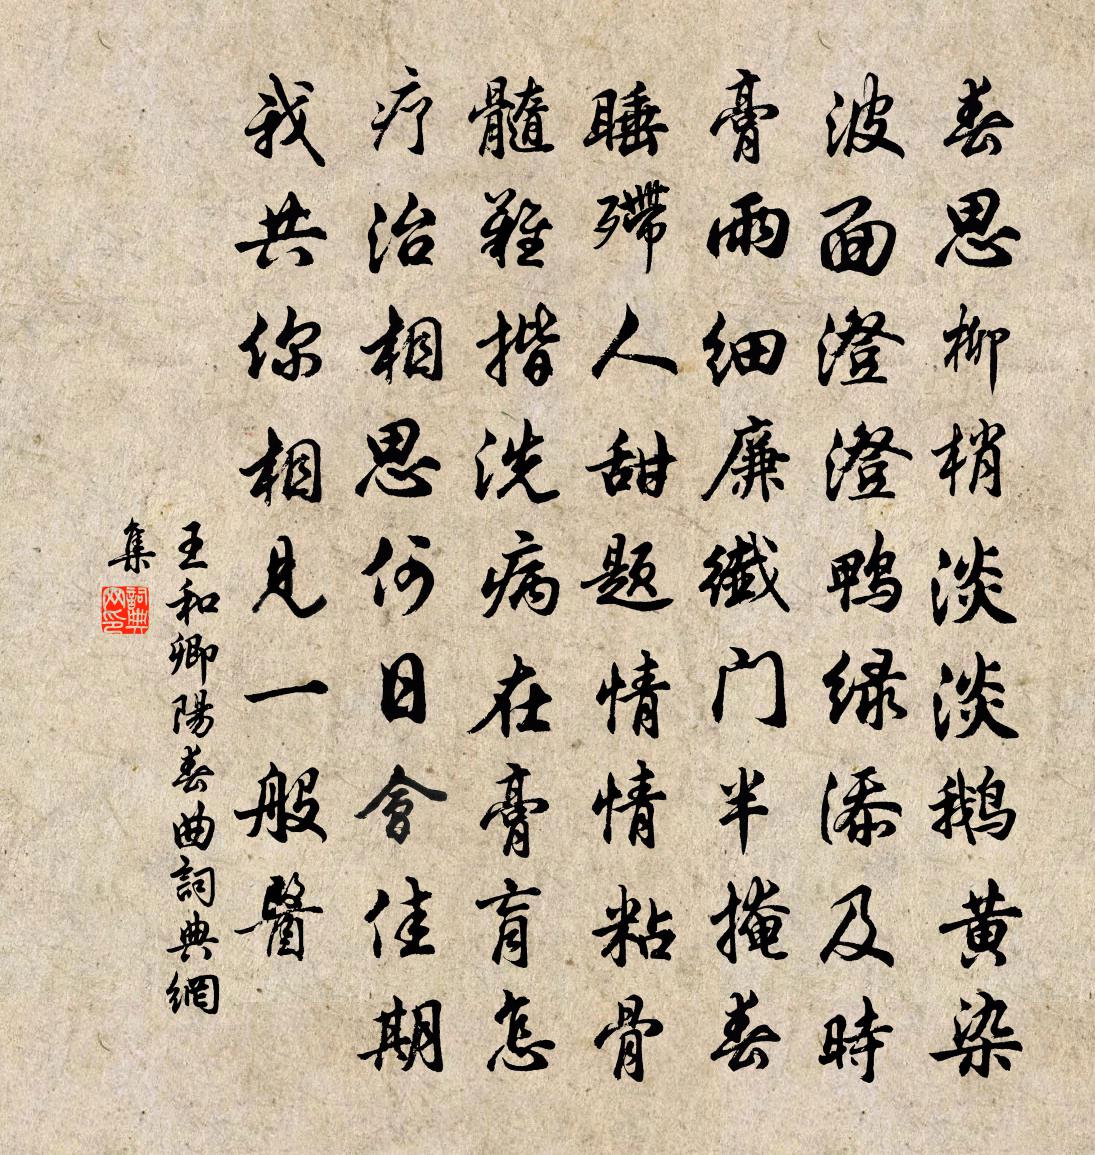 春思柳梢淡淡鹅黄染
波面澄澄鸭绿添及時
膏雨细廉纖门半掩春
睡殢人甜题情情粘骨
髓難揩洗病在膏肓怎
疗治相思何日會佳期
我共你相見一般醫
王和卿陽春曲詞典網
集
詞典
网印